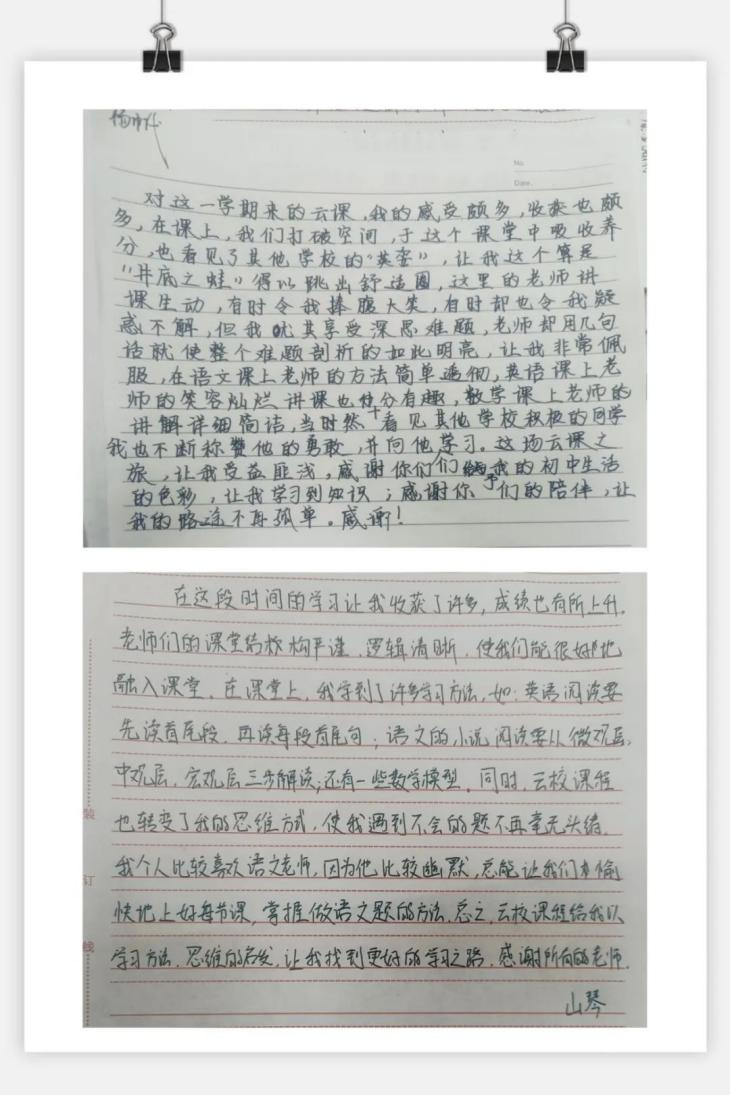 No.
Date.
对这一学期来的云课,我的感受颇多,收获也颇
多,在课上,我们打破空间,于这个课堂中吸收养
分,也看见了其他学校的“英姿”,让我这个算是
“井底之蛙”得以跳出舒适圈,这里的老师讲
课生动,有时令我捧腹大笑,有时却也令我疑
惑不解,但我尤其享受深思难题,老师却用几句
话就使整个难题剖析的如此明亮,让我非常佩
服,在语文课上老师的方法简单透彻,英语课上老
师的笑容灿烂讲课也十分有趣,数学课上老师的
讲解详细简洁,当时然看见其他学校积极的同学
我也不断称赞他的勇敢,并向他学习。这场云课之
旅,让我受益匪浅,感谢你们给予我的初中生活
的色彩,让我学习到知识;感谢你们的陪伴,让
我的路途不再孤单。感谢!
在这段时间的学习让我收获了许多,成绩也有所上升。
老师们的课堂结构严谨,逻辑清晰,使我们能很好地
融入课堂。在课堂上,我学到了许多学习方法,如:英语阅读要
先读首尾段,再读每段首尾句;语文的小说阅读要从微观层,
中观层,宏观层三步解读;还有一些数学模型。同时,云校课程
也转变了我的思维方式,使我遇到不会的题不再毫无头绪。
我个人比较喜欢语文老师,因为他比较幽默,总能让我们愉
快地上好每节课,掌握做语文题的方法。总之,云校课程给我以
学习方法,思维的启发,让我找到更好的学习之路,感谢所有的老师。
山琴
装
订
线